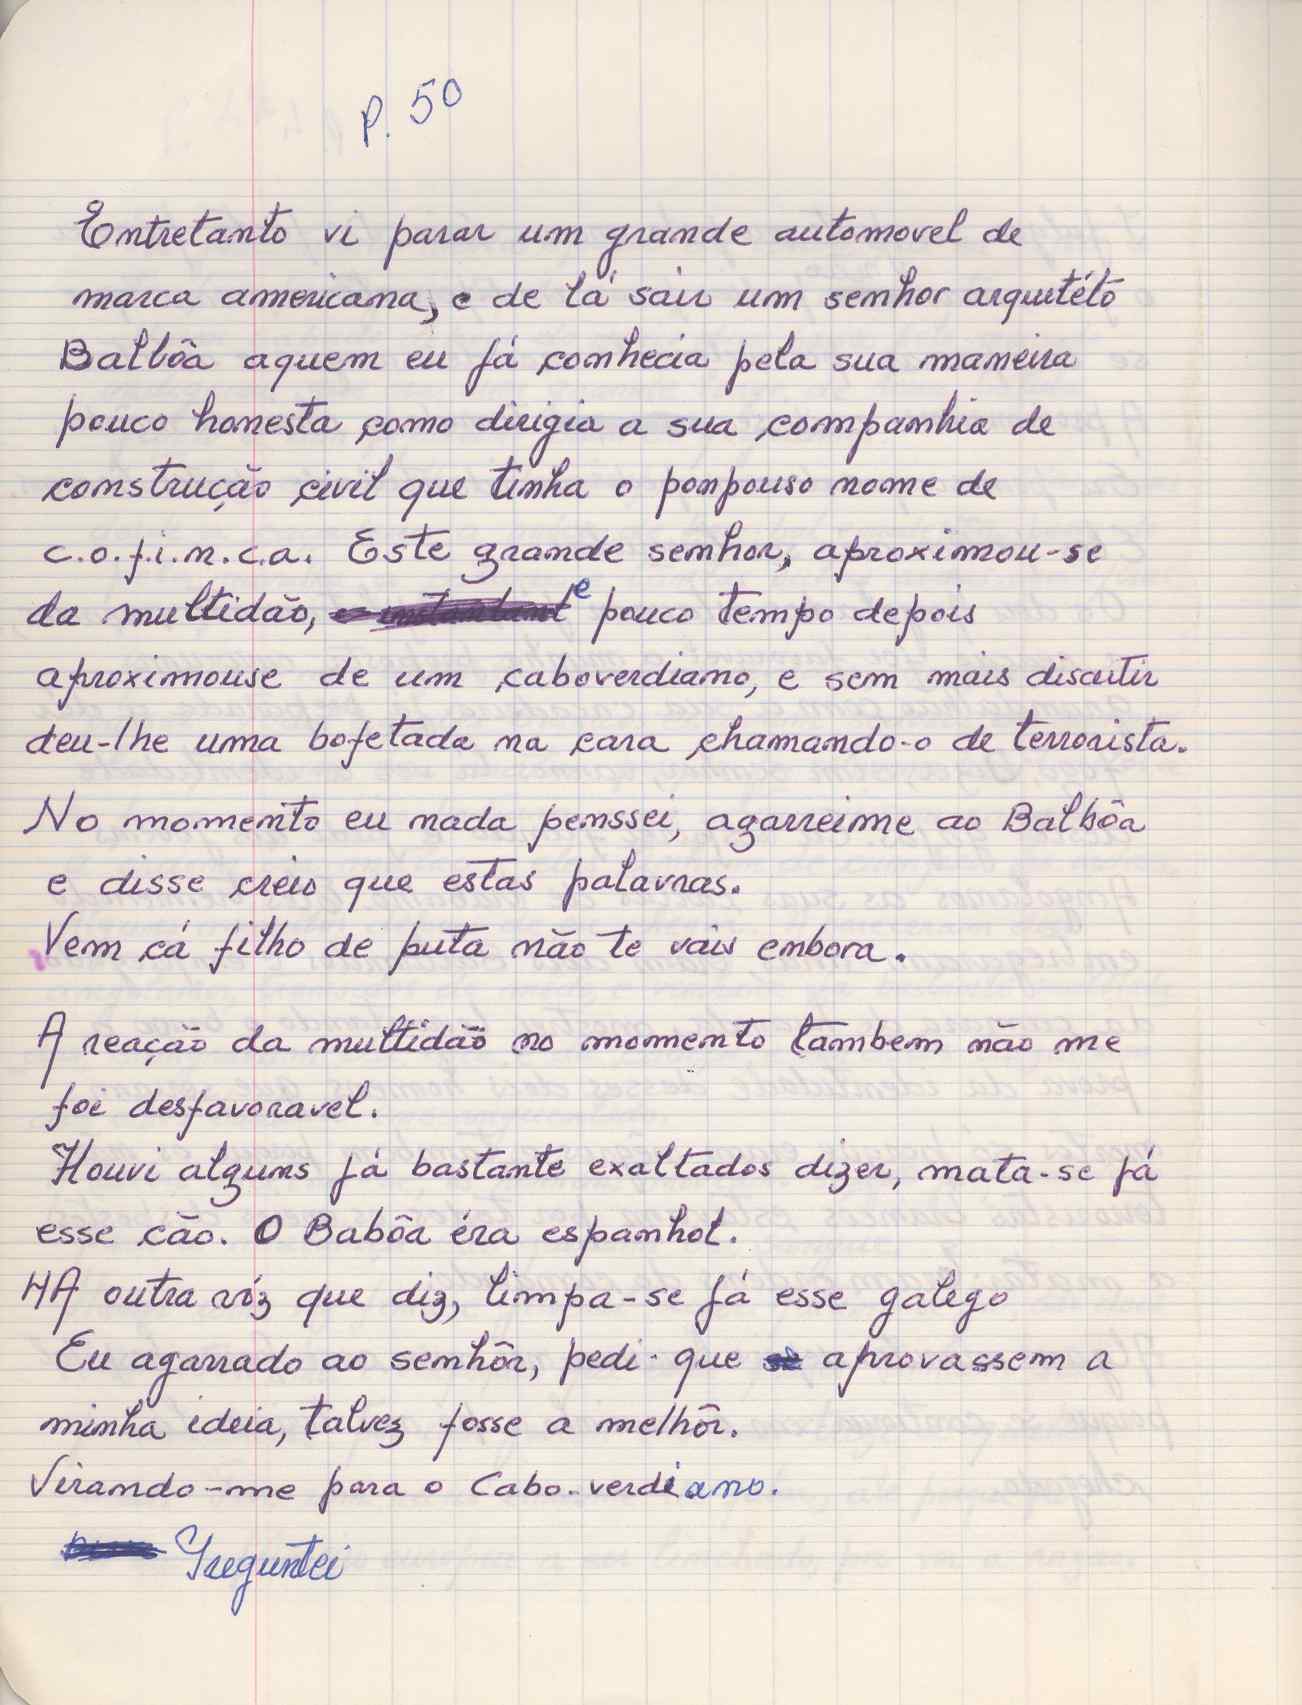 P. 50
Entretanto vi parar um grande automovel de
marca americana, e de lá sair um senhor arquitéto
Balbôa aquem eu já conhecia pela sua maneira
pouco honesta como dirigia a sua companhia de
construção civil que tinha o pompouso nome de
c.o.f.i.n.c.a. Este grande senhor, aproximou-se
da multidão, e pouco tempo depois
aproximouse de um caboverdiano, e sem mais discutir
deu-lhe uma bofetada na cara chamando-o de terrorista.
No momento eu nada penssei, agarreime ao Balbôa
e disse creio que estas palavras.
Vem cá filho de puta não te vais embora.
A reação da multidão no momento tambem não me
foi desfavoravel.
Houvi alguns já bastante exaltados dizer, mata-se já
esse cão. O Babôa éra espanhol.
HA outra vóz que diz, limpa-se já esse galego
Eu agarrado ao senhôr, pedi que aprovassem a
minha ideia, talvez fosse a melhôr.
Virando-me para o Cabo-verdiano.
Preguntei